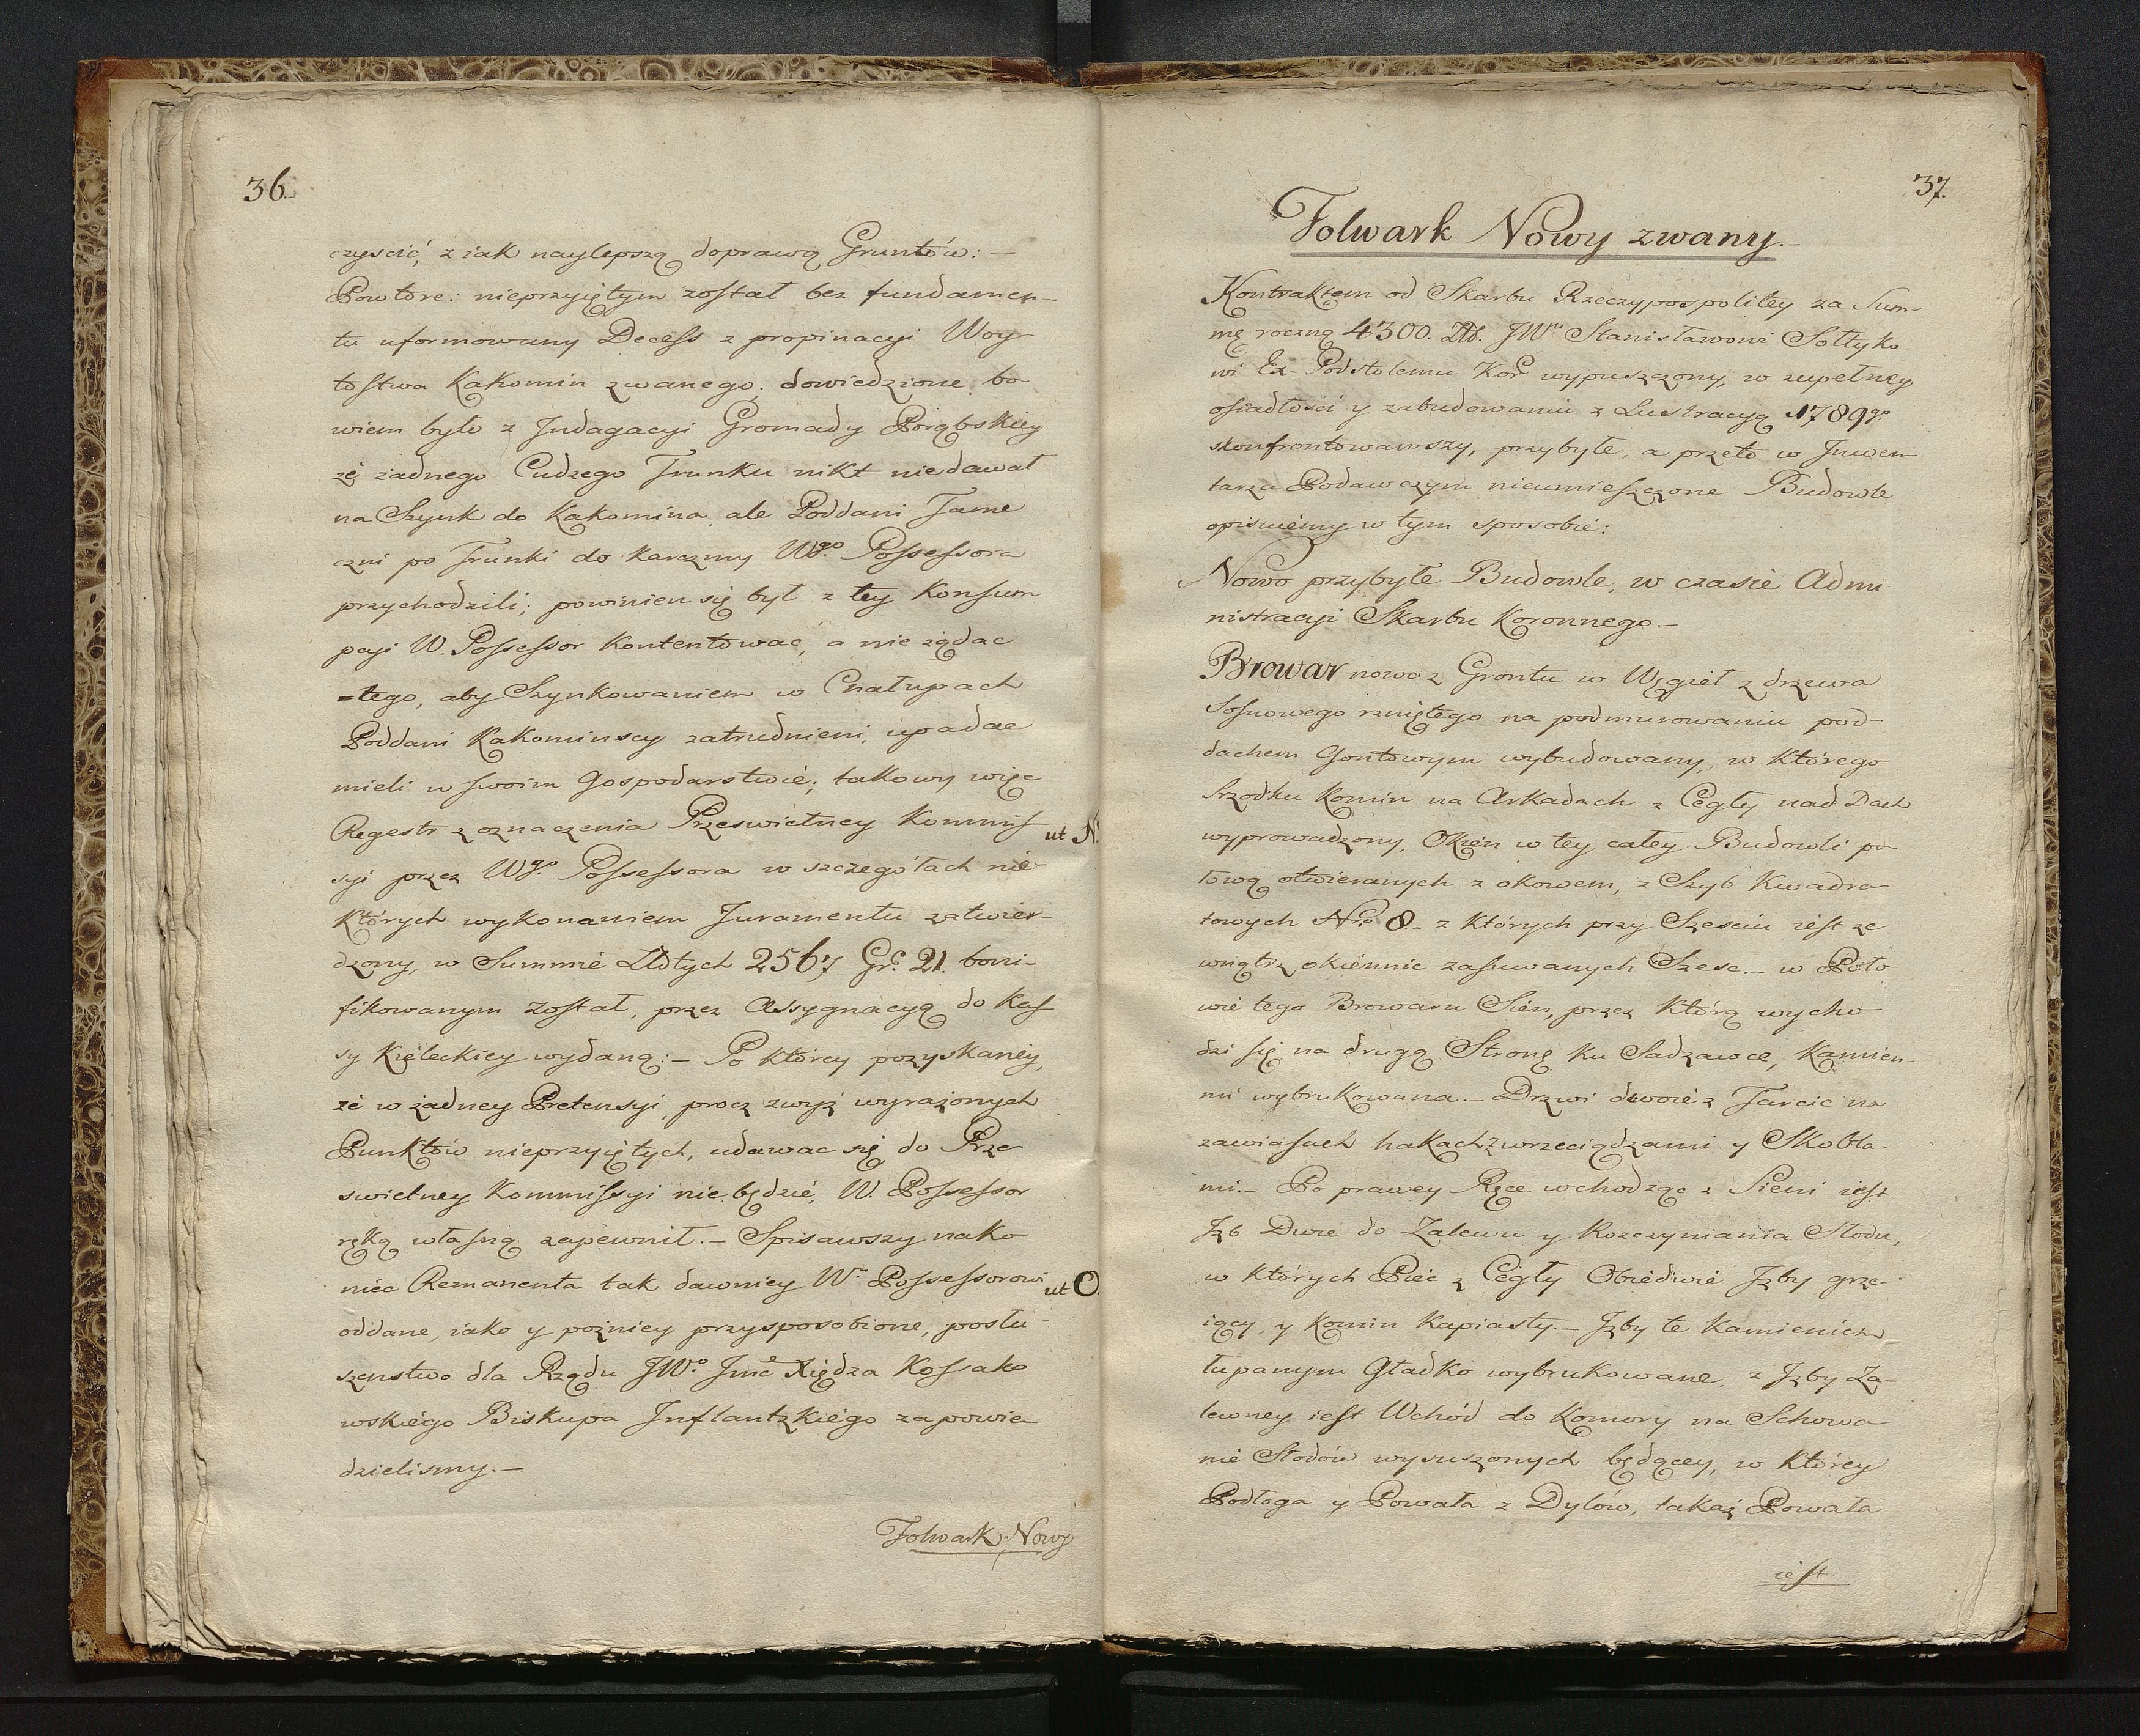 36.
czyscić, z iak naylepszą doprawą Gruntów: —
Powtóre: nieprzyiętym został bez fundamen-
tu uformowany Decess z propinacyi Woy
tostwa Kakomin zwanego, dowiedzione bo
wiem było z Indagacyi Gromady Porąbskiey
że żadnego Cudzego Trunku nikt niedawał
na Szynk do Kakomina, ale Poddani Tame
czni po Trunki do karczmy Wgo. Possessora
przychodzili; powinien się był z tey Konsum
pcyi W. Possessor Kontentować, a nie żądac
=tego, aby Szynkowaniem w Chałupach
Poddani Kakominscy zatrudnieni, upadac
mieli w swoim Gospodarstwie; takowy więc
Regestr z oznaczenia Prześwietney Kommis ut N.
syi przez Wgo. Possessora w szczegółach nie-
których wykonaniem Juramentu zatwier-
dzony, w Summie Złłotych 2567 Gr. 21. boni-
fikowanym został, przez Assygnacyą do Kas
sy Kieleckiey wydaną: — Po którey pozyskaney,
że w żadney Pretensyi, procz zwyż wyrażonych
Punktów nieprzyiętych, udawac się do Prze
swietney Kommissyi nie będzie, W. Possessor
ręką własną zapewnił. — Spisawszy nako
niec Remanenta tak dawniey Wu Possessorowi ut O.
oddane, iako y pozniey przysposobione, posłu-
szenstwo dla Rządu JWo. Jmc Xiędza Kossako
wskiégo Biskupa Inflantzkiégo zapowie
dzielismy. —
Folwark Nowy
37.
Folwark Nowy zwany. —
Kontraktem od Skarbu Rzeczypospolitey za Sum-
mę roczną 4300. Złł. JWu Stanisławowi Sołtyko-
wi Ex-Podstolemu Kor wypuszczony, w zupełney
osiadłości y zabudowaniu z Lustracyą 1789go.
skonfrontowawszy, przybyłe, a przeto w Inwen
tarzu Podawczym nieumieszczone Budowle
opisuiemy w tym sposobie:
Nowo przybyłe Budowle, w czasie Admi
nistracyi Skarbu Koronnego. —
Browar nowo z Grontu w Węgieł z drzewa
Sosnowego rzniętego na podmurowaniu pod-
dachem Gontowym wybudowany, w którego
Srzodku Komin na Arkadach z Cegły nad Dach
wyprowadzony, Okien w tey całey Budowli po
łową otwieranych z okowem, z Szyb Kwadra
towych Nro. 8 — z których przy Szesciu iest ze
wnątrz okiennic zasuwanych Szesc. — w Poło
wie tego Browaru Sien, przez którą wycho
dzi się na drugą Stronę ku Sadzawce, Kamien-
mi wybrukowana. — Drzwi dwoie z Tarcic na
zawiasach hakach z wrzeciądzami y Skobla-
mi. — Po prawey Ręce wchodząc z Sieni iest
Izb Dwie do Zalewu y Rozczyniania Słodu,
w których Piec z Cegły Obiedwie Izby grze-
iący, y Komin Kapiasty. — Izby te Kamieniem
łupanym Gładko wybrukowane, z Izby Za-
lewney iest Wchód do Komory na Schowa
nie Słodów wysuszonych będącey, w którey
Podłoga y Powała z Dylów, takaż Powała
iest